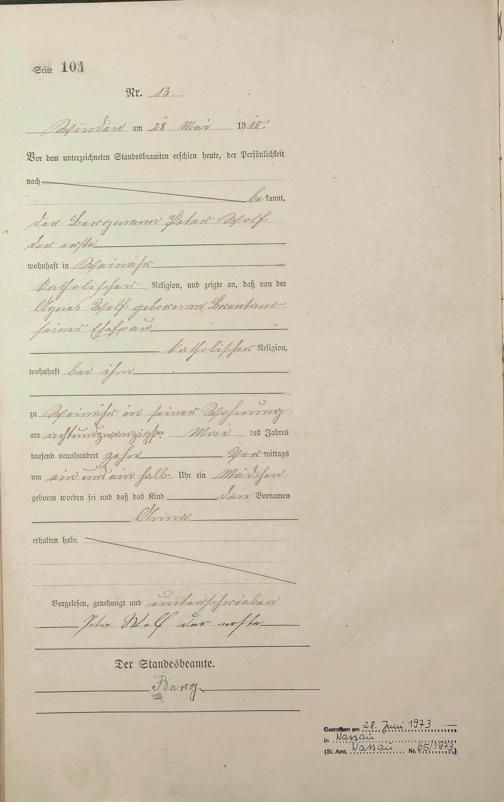 Seite 103
Nr. 13.
Winden am 28 Mai 1910.
Vor dem unterzeichneten Standesbeamten erschien heute, der Persönlichkeit
nach
be kannt,
der Bergmann Peter Wolf
der erste
wohnhaft in Weinähr
katholischer Religion, und zeigte an, daß von der
Agnes Wolf geborenen
seiner Ehefrau
katholischer Religion,
wohnhaft bei ihm
zu Weinähr in seiner Wohnung
am achtundzwanzigsten Mai des Jahres
tausend neunhundert zehn Vor mittags
um ein und ein halb Uhr ein Mädchen
geboren worden sei und daß das Kind den Vornamen
Anna
erhalten habe.
Vorgelesen, genehmigt und unterschrieben
Peter Wolf der erste
Der Standesbeamte.
Gestorben am 28. Juni 1973
in Nassau
(St. Amt. Nassau Nr. 65/1973)